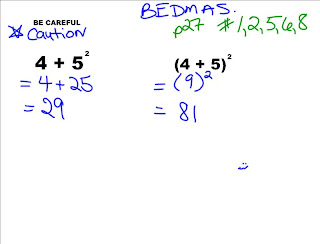 BEDMAS.
BE CAREFUL
Caution
p27 # 1,2,5,6,8
4 + 5²
= 4 + 25
= 29
(4 + 5)²
= (9)²
= 81